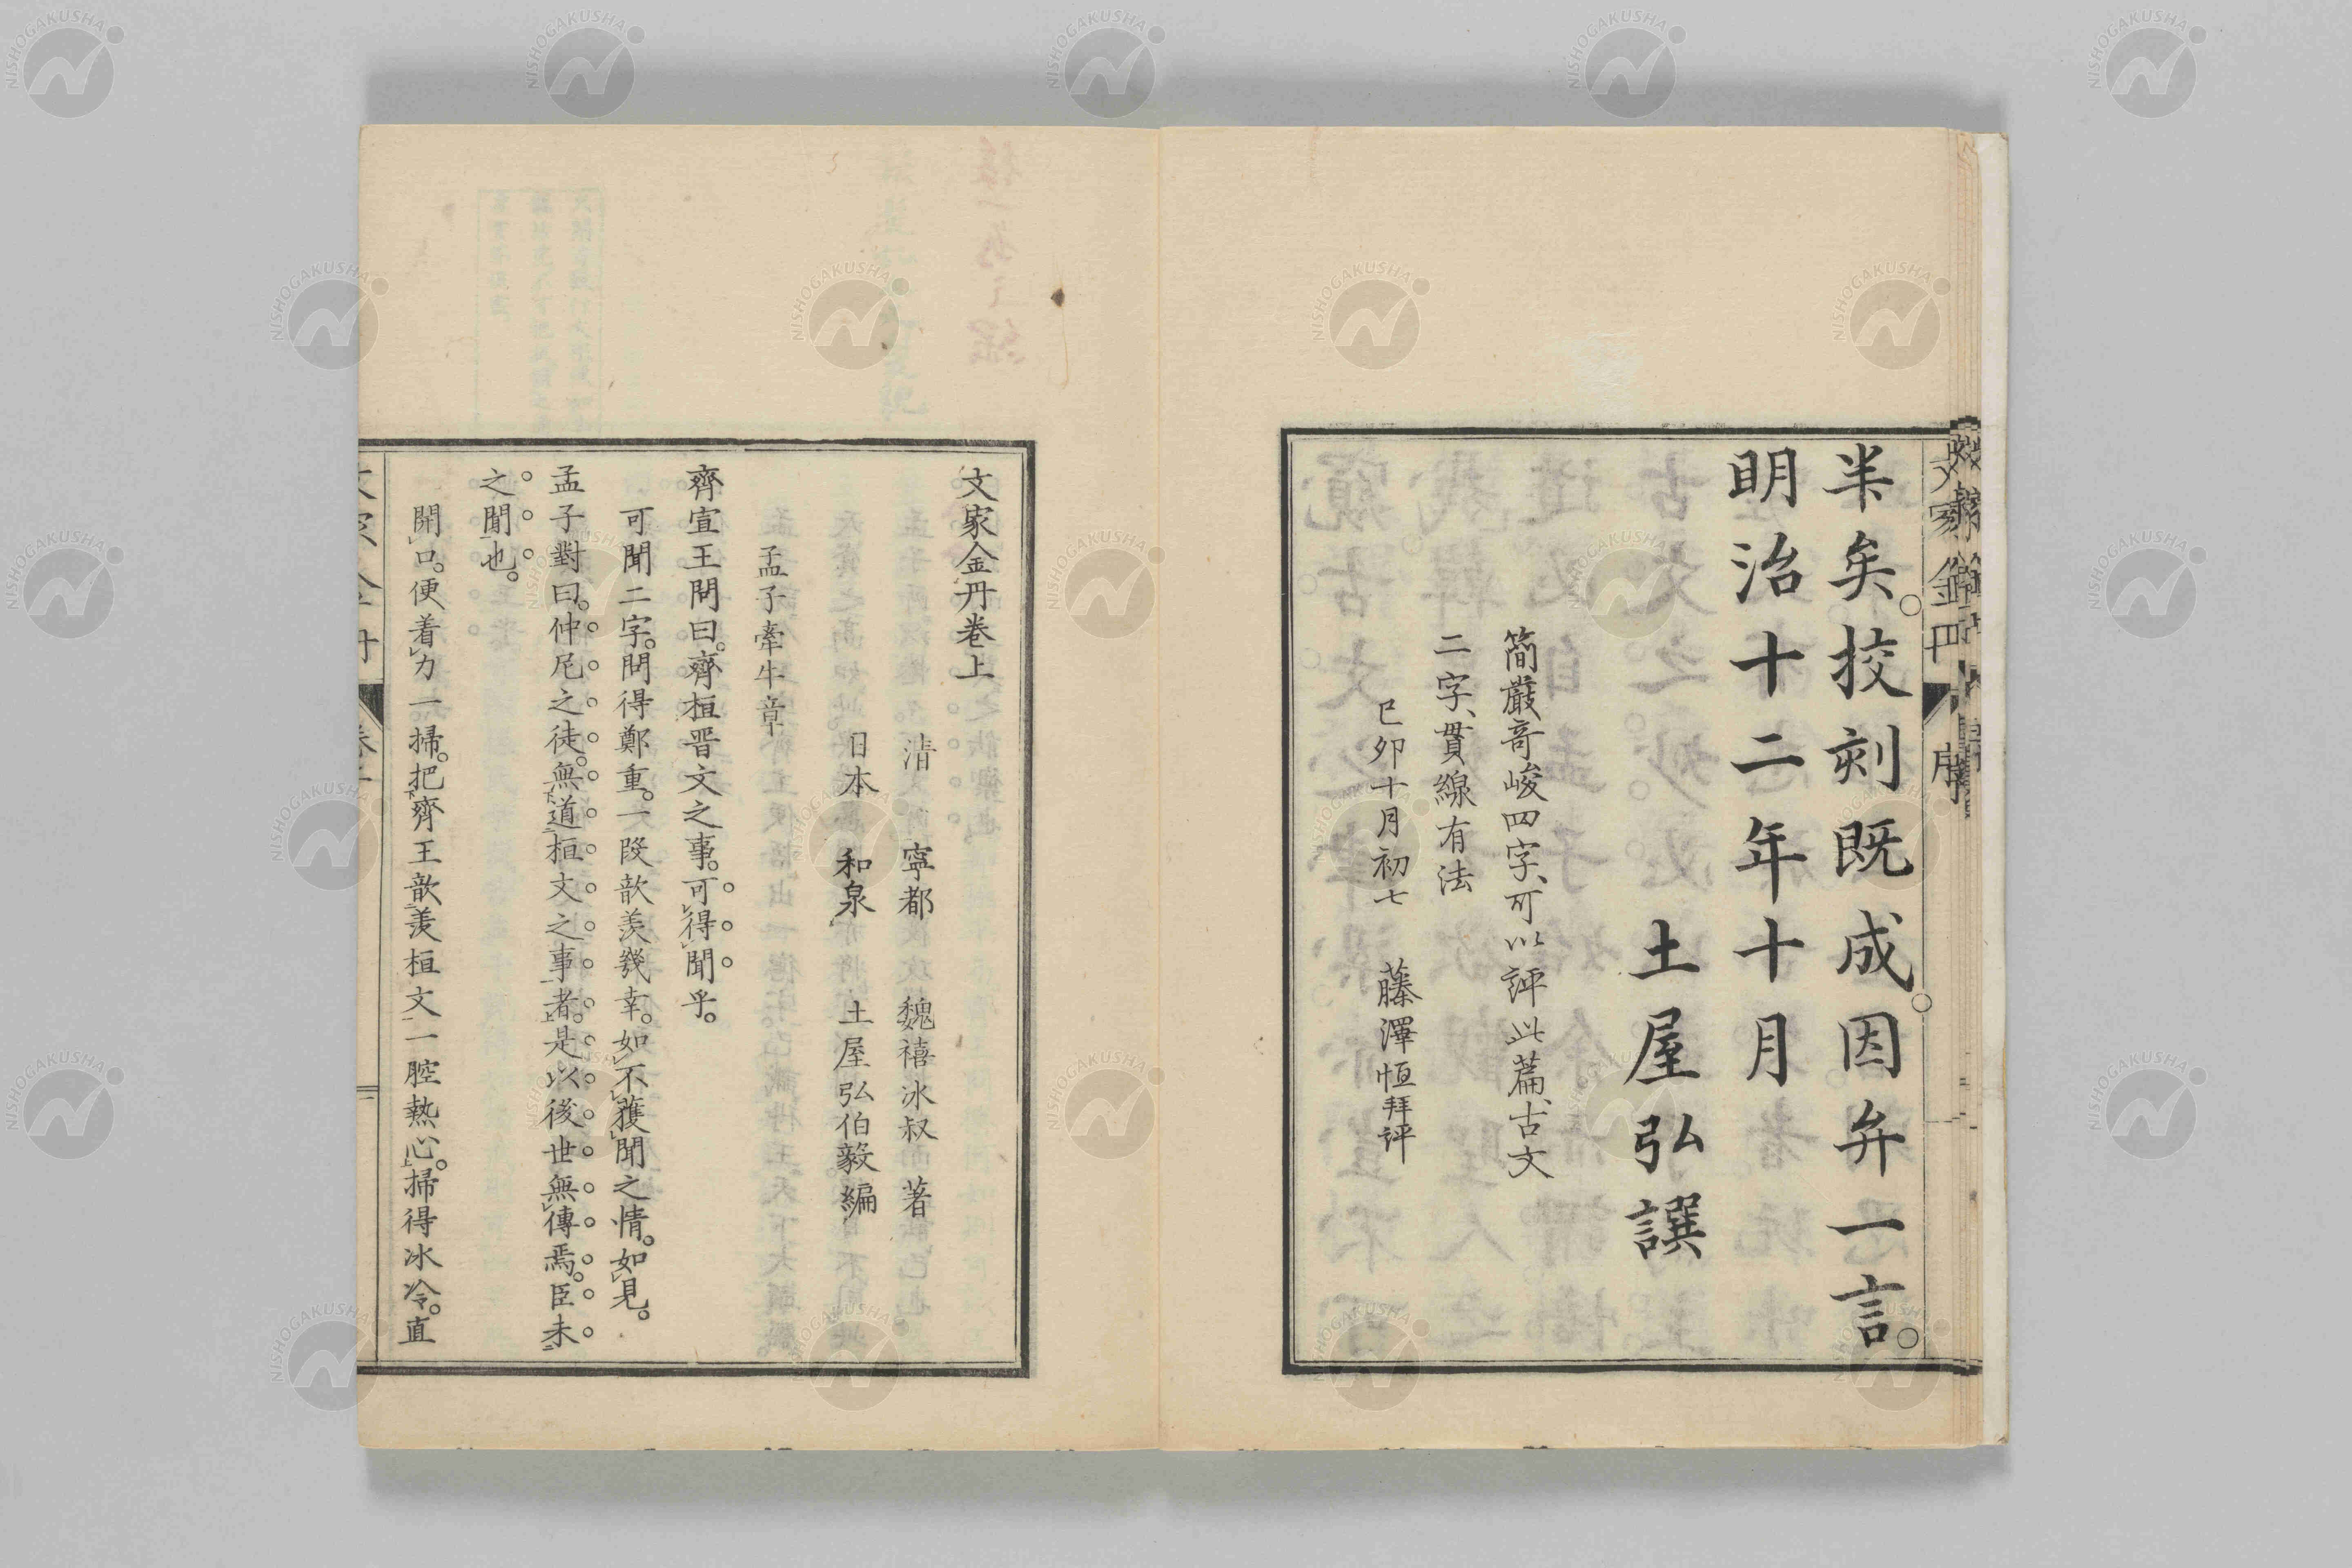 半矣。挍刻既成。因弁一言。
明治十二年十月
土屋弘譔
簡嚴奇峻四字、可以評此篇、古文
二字、貫線有法
己卯十月初七 藤澤恒拜評
文家金丹卷上
清 寧都 魏禧冰叔 著
日本 和泉 土屋弘伯毅編
孟子牽牛章
齊宣王問曰。齊桓晋文之事。可レ得レ聞乎。
可聞二字。問得鄭重。一段歆羨幾幸。如レ不レ獲レ聞之情。如レ見。
孟子對曰。仲尼之徒。無下道二桓文之事一者上。是以後世無レ傳焉。臣未二
之聞一也。
開レ口。便着レ力一掃。把下齊王歆二羨桓文一一腔熱心上。掃得冰冷。直
NISHOGAKUSHA